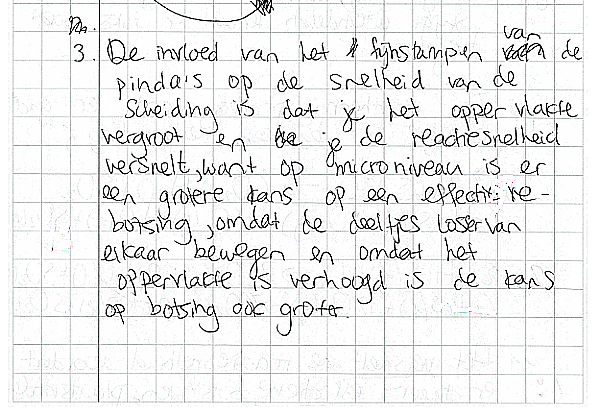 3. De invloed van het fijnstampen van de
pinda's op de snelheid van de
Scheiding is dat je het oppervlakte
vergroot en je de reactiesnelheid
versnelt, want op microniveau is er
een grotere kans op een effectieve
botsing, omdat de deeltjes losser van
elkaar bewegen en omdat het
oppervlakte is verhoogd is de kans
op botsing ook groter.